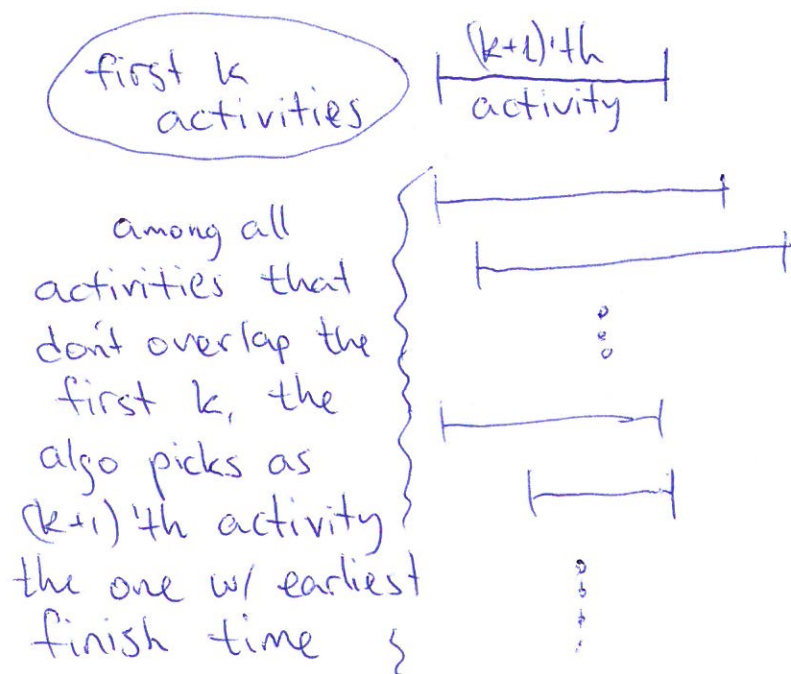 first k
activities
(k+1)'th
activity
among all
activities that
don't overlap the
first k, the
algo picks as
(k+1)'th activity
the one w/ earliest
finish time